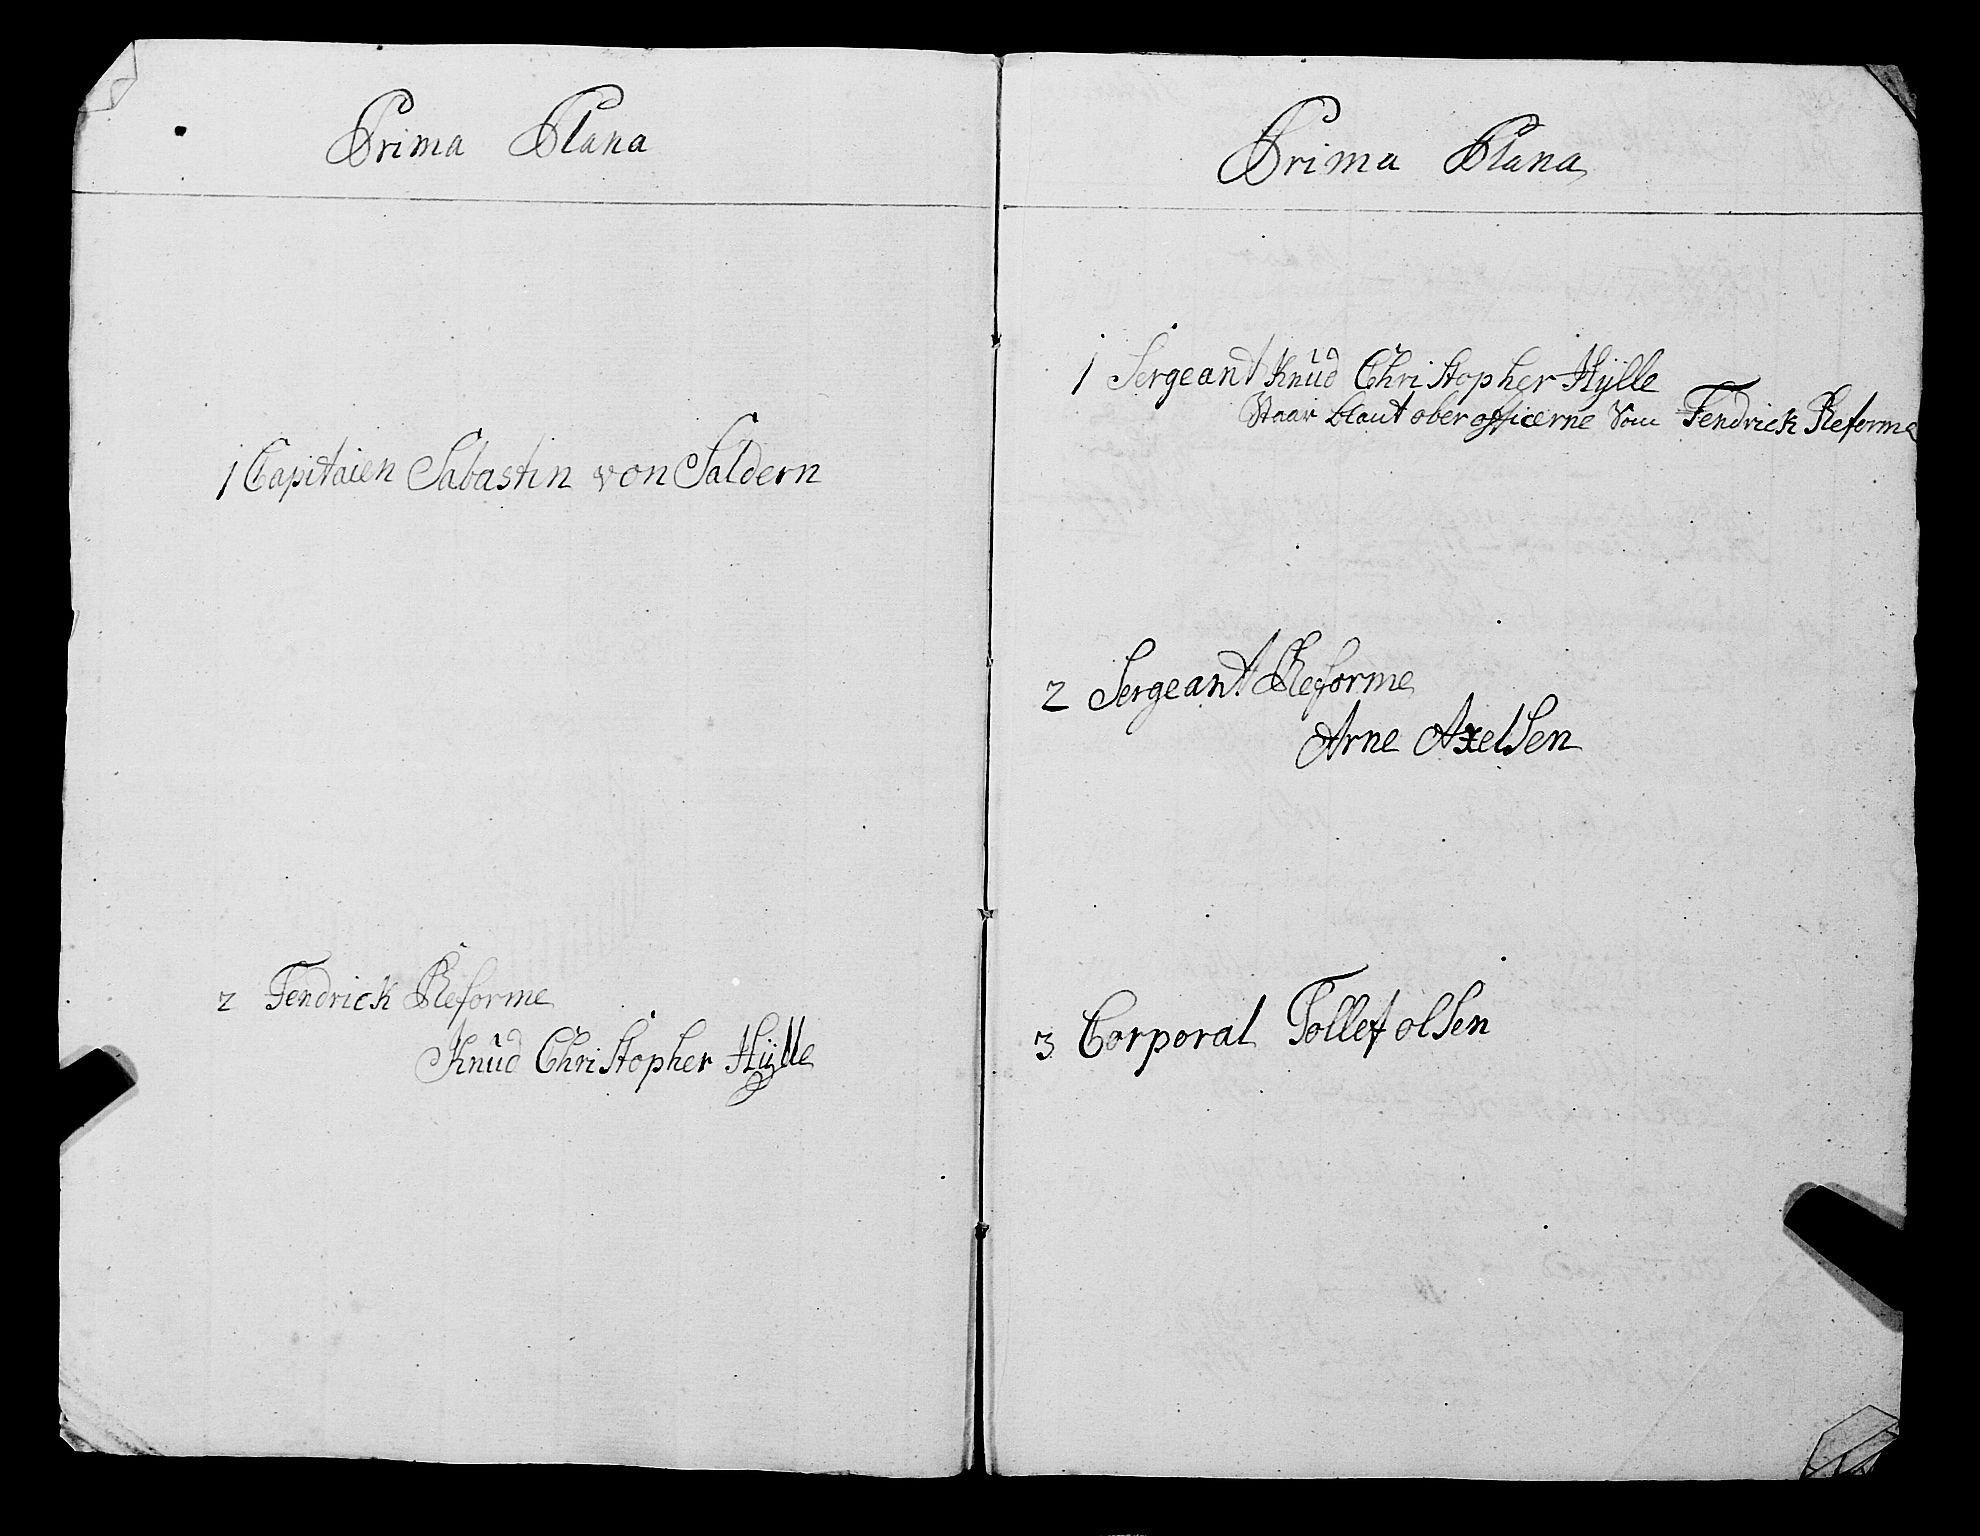 Prima Plana
1 Capitaien Sabastin von Saldern
2 Fendrick Reforme
Knud Christopher Hÿlle
Prima Plana
1 Sergeant Knud Christopher Hÿlle
Staar blant ober officerne Som Fendrick Reforme
2 Sergeant Reforme
Arne Axelsen
3 Corporal Tollef olsen